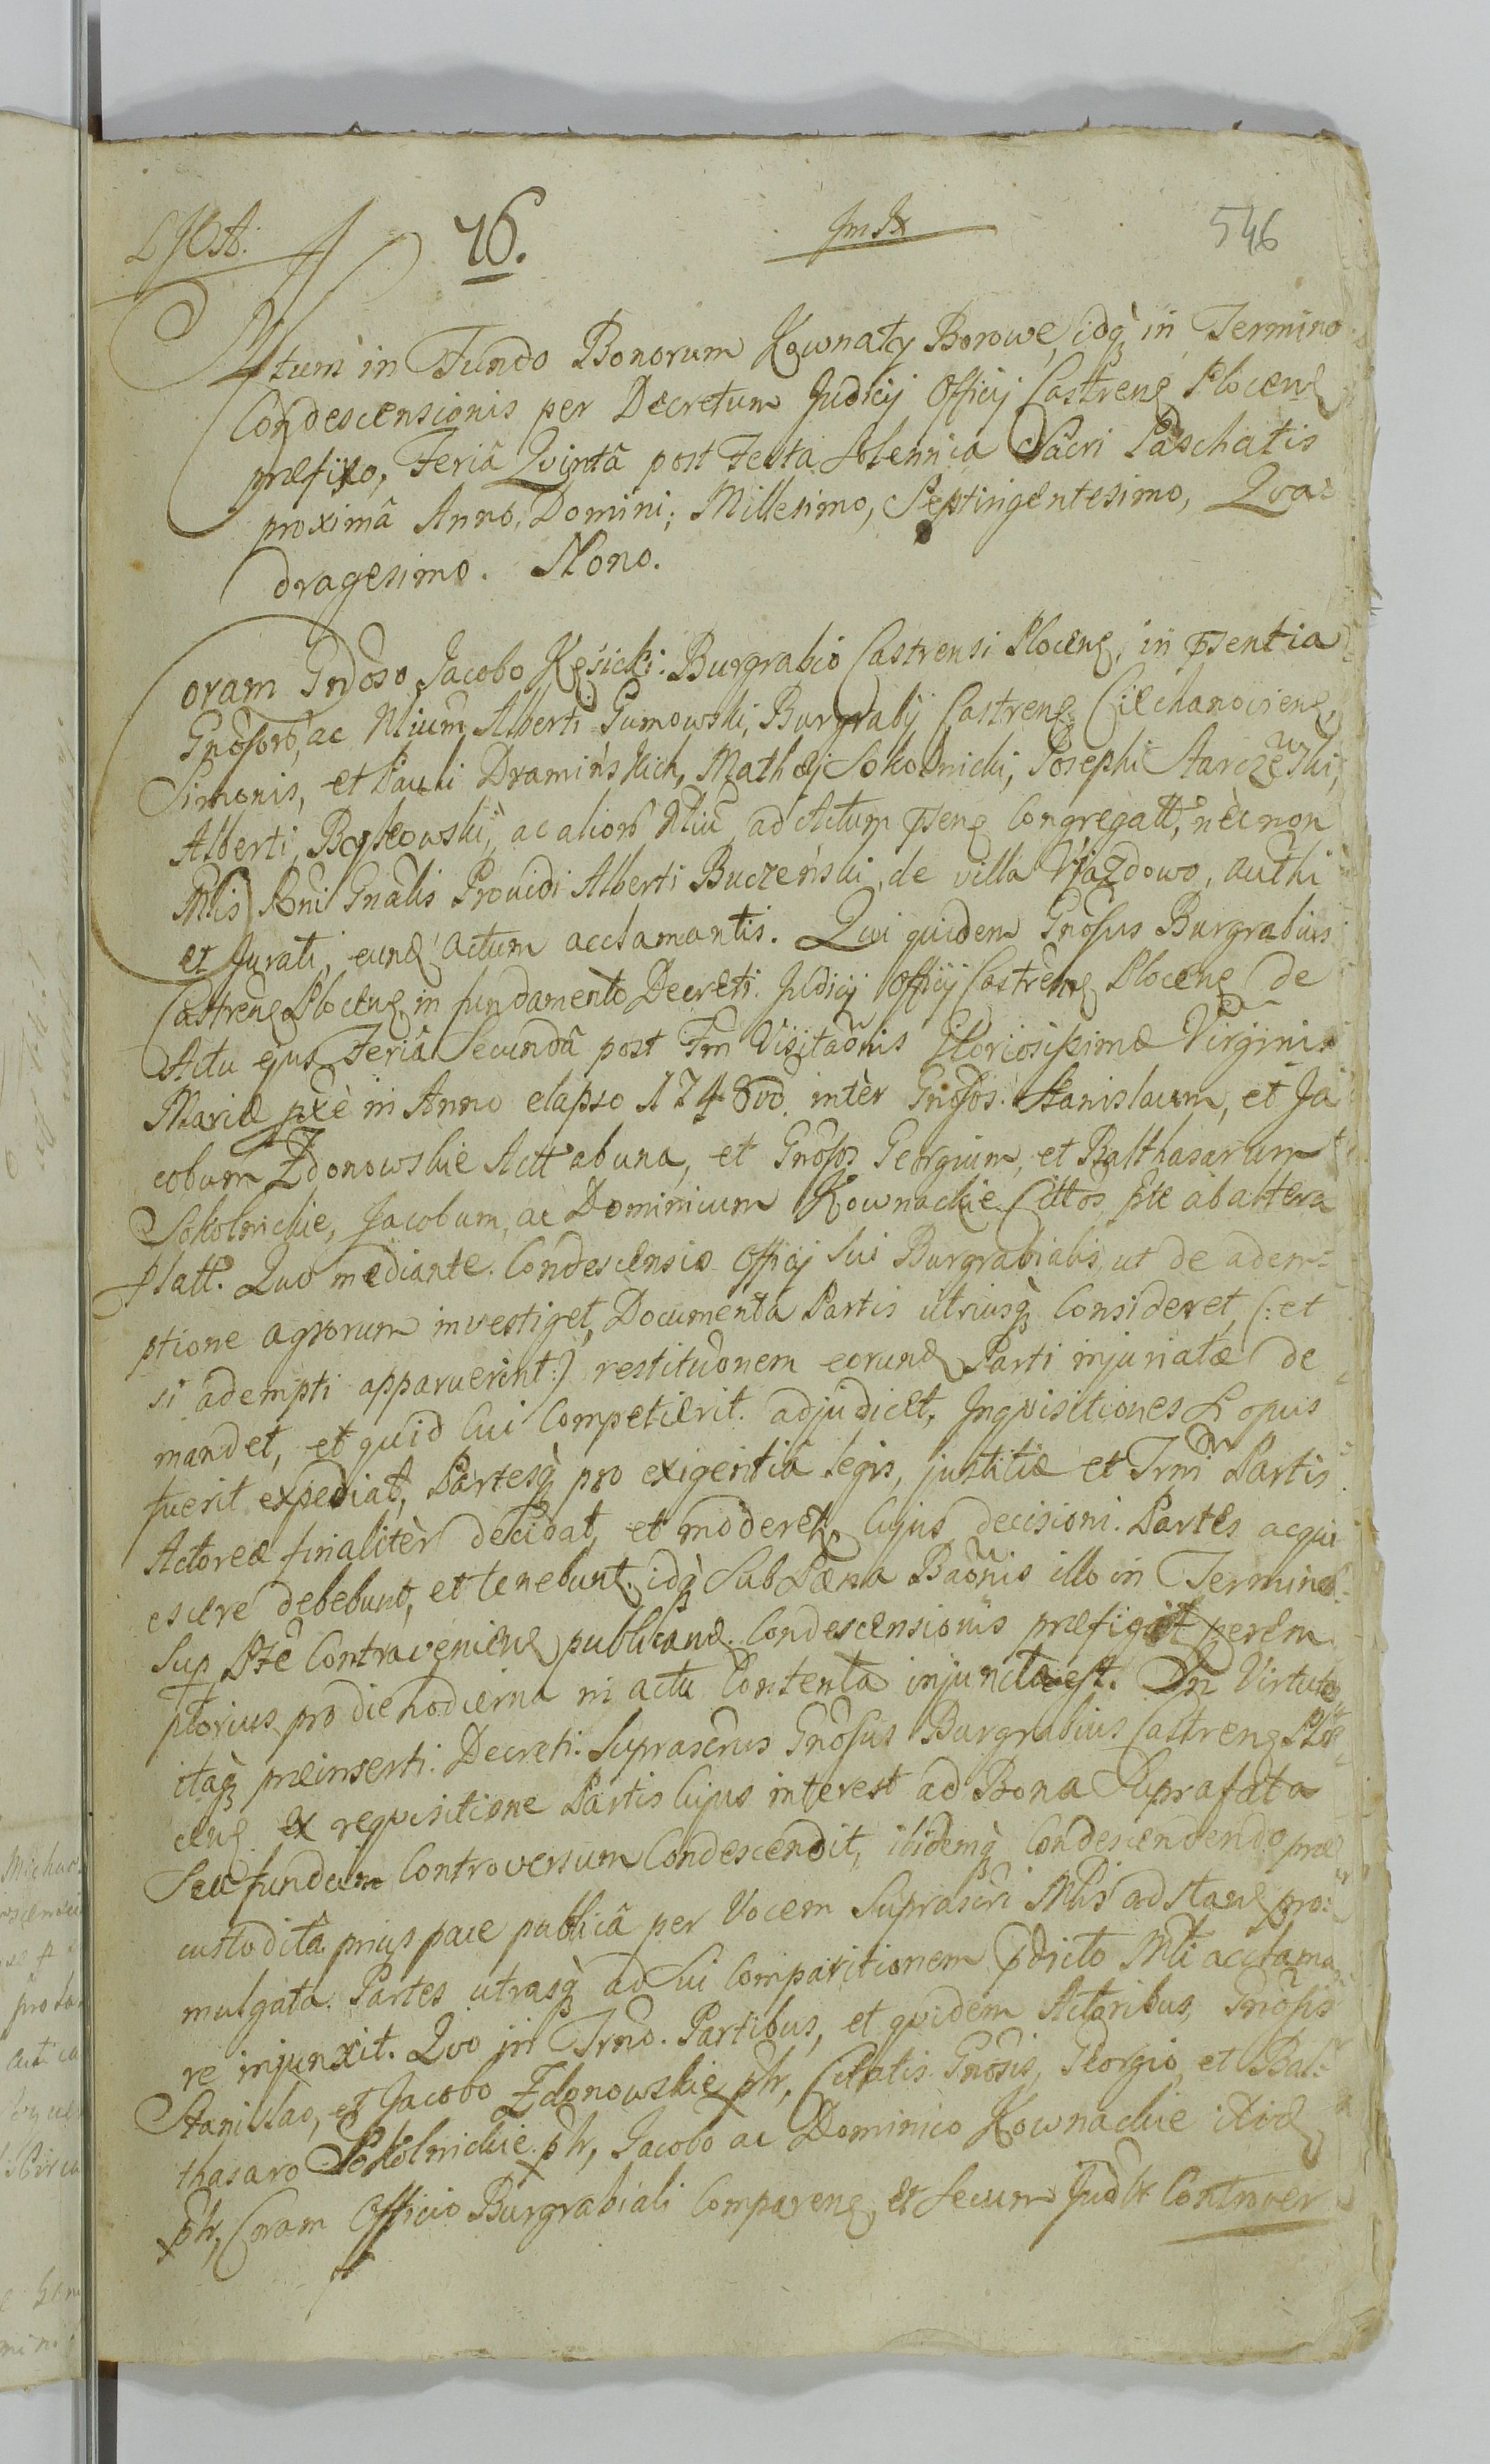 76.
546
Actum in Fundo Bonorum Kownaty Borowe, idq̀ in Termino
Condescensionis per Decretum Judicij Officij Castren Plocen
præfixo, Feriâ Qvintâ post Festa Solennia Sacri Paschatis
proximâ Anno, Domini; Millesimo, Septingentesimo, Qva=
dragesimo. Nono.
Coram Gndoso Jacobo Kęsicki: Burgrabio Castrensi Plocen, in psentia
Gnosorũ, ac Nlium Alberti Gumowski, Burgrabij Castren Ciechanovien,
Simonis, et Pauli Dramińskich, Mathæi Sokolnicki, Josephi Starczewski,
Alberti Boskowski, ac aliorũ Nliũ ad Actum psen Congregatt, nècnon
Mlis Rni Gnalis Providi Alberti Buczeński, de villa Ujazdowo, authi
et Jurati, eund actum acclamantis. Qui quidem Gnosus Burgrabius
Castren Plocen, in fundamento Decreti. Judicij Officij Castren Plocen de
Actu ejus Feriâ Secundâ post Fm Visitaonis Gloriosissimæ Virginis
Mariæ pxè in Anno elapso 1748vo. intèr Gnosos. Stanislaum, et Ja
cobum Zdonowskie Actt ab una, et Gnosos Georgium, et Balthasarum
Sokolnickie, Jacobum, ac Dominicum Kownackie Cittos pte ab altera
Platt. Quo mediante. Condescensio Officij Sui Burgrabialis, ut de adem=
ptione agrorum investiget, Documenta Partis utriusq̀ Consideret, (: et
si adempti apparuerint:) restituonem eorund Parti injuriatæ de
mandet, et quid Cui Competierit. adjudicet, Inqvisitiones S opus
fuerit expediat, Partesq̀ pro exigentiâ legis, justitiæ et Trni Partis
Actoreæ finalitèr decidat, et moderet, Cujus decisioni. Partes acqui
escere debebunt, et tenebunt. idq̀ Sub Pæna Baonis illo in Termino
Sup Pte Contravenien publicand. Condescensionis præfigit perem
ptorius pro die hodierna in actu Contenta injuncta est. In Virtute
itaq̀ præinserti. Decreti. Suprascrus Gnosus Burgrabius Castren Plo
cen ex reqvisitione Partis Cujus interest ad Bona Suprafata
Seu fundum Controversum Condescendit, ibidemq̀ Condescendendo præ
custoditâ. prius pace publicâ per Vocem Suprascri Mlis adstan pro=
mulgata. Partes utrasq̀ ad Sui Comparitionem pdicto Mli acclama
re injunxit. Qvo in Trno. Partibus, et quidem Actoribus, Gnosis
Stanislao, et Jacobo Zdonowskie pltr, Citatis Gnosis, Georgio, et Bal=
thasaro Sokolnickie pltr, Jacobo ac Dominico Kownackie itid
pltr, Coram Officio Burgrabiali Comparen, et Secum Judltr Controver